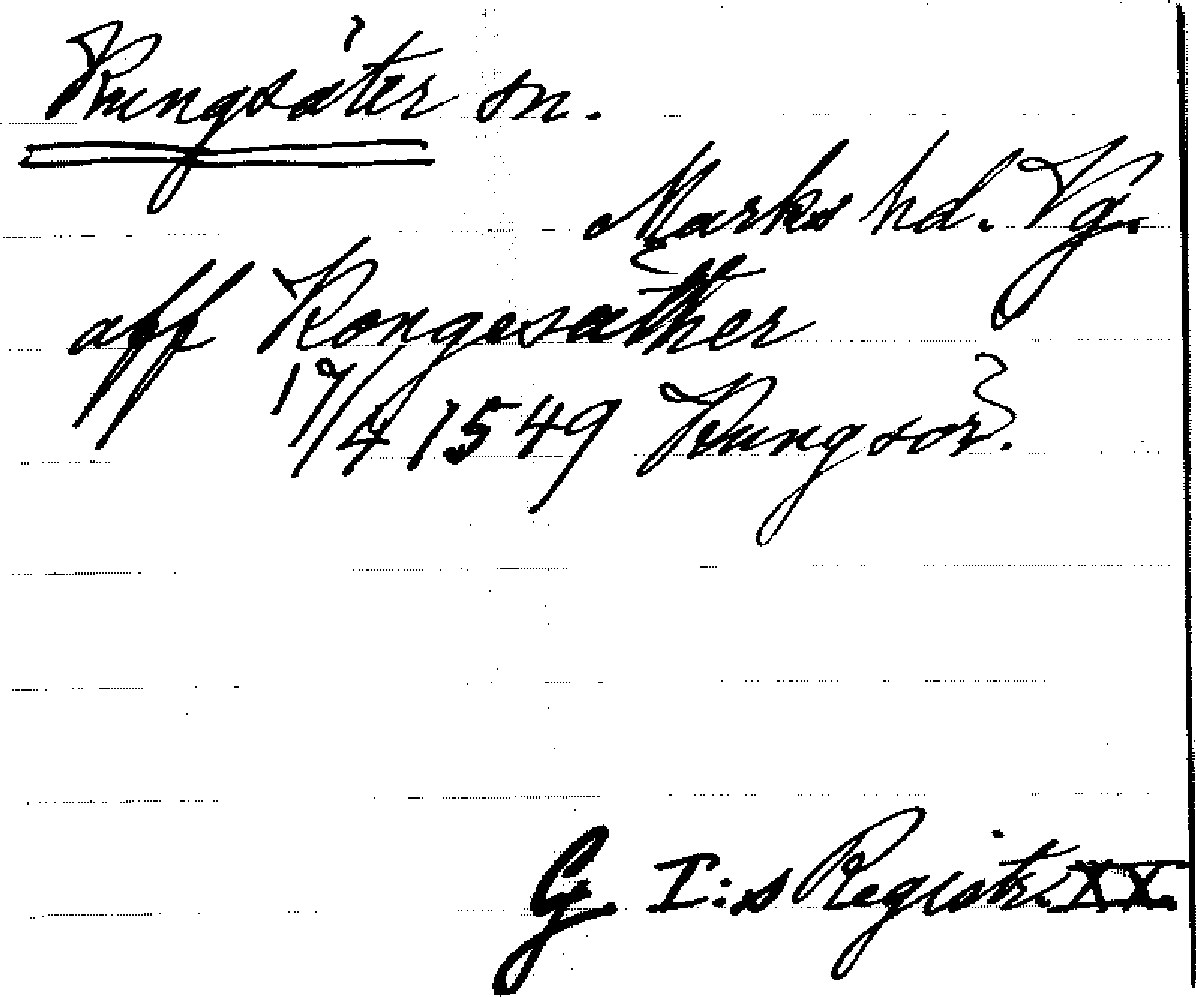 Kungsäter sn.
Marks hd. Vg.
aff Kongesæther
17/4 1549 Kungsör.
G. I:s Registr. XX.